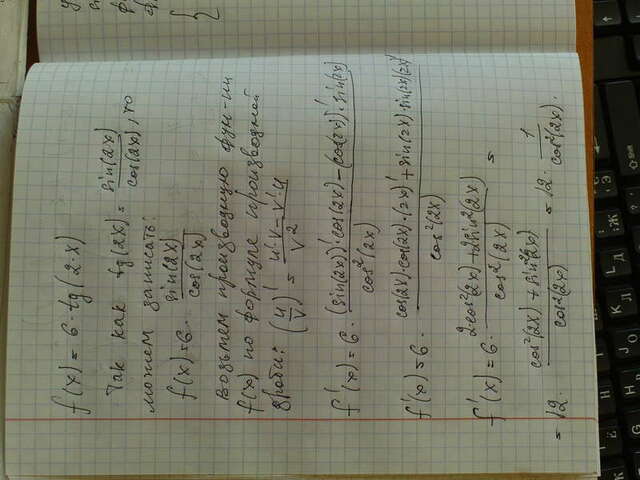 f(x) = 6·tg(2·x)
Так как tg(2x) = sin(2x)/cos(2x), то
можем записать:
f(x) = 6· sin(2x)/cos(2x)
Возьмем производную фун-ии
f(x) по формуле производной
дроби: (u/v)' = (u'v - v'u)/v²
f'(x) = 6· ((sin(2x))'·cos(2x) - (cos(2x))'·sin(2x))/cos²(2x)
f'(x) = 6· (cos(2x)·cos(2x)·(2x)' + sin(2x)·sin(2x)(2x)')/cos²(2x)
f'(x) = 6· (2·cos²(2x) + 2sin²(2x))/cos²(2x) =
= 12· (cos²(2x) + sin²(2x))/cos²(2x) = 12· 1/cos²(2x).